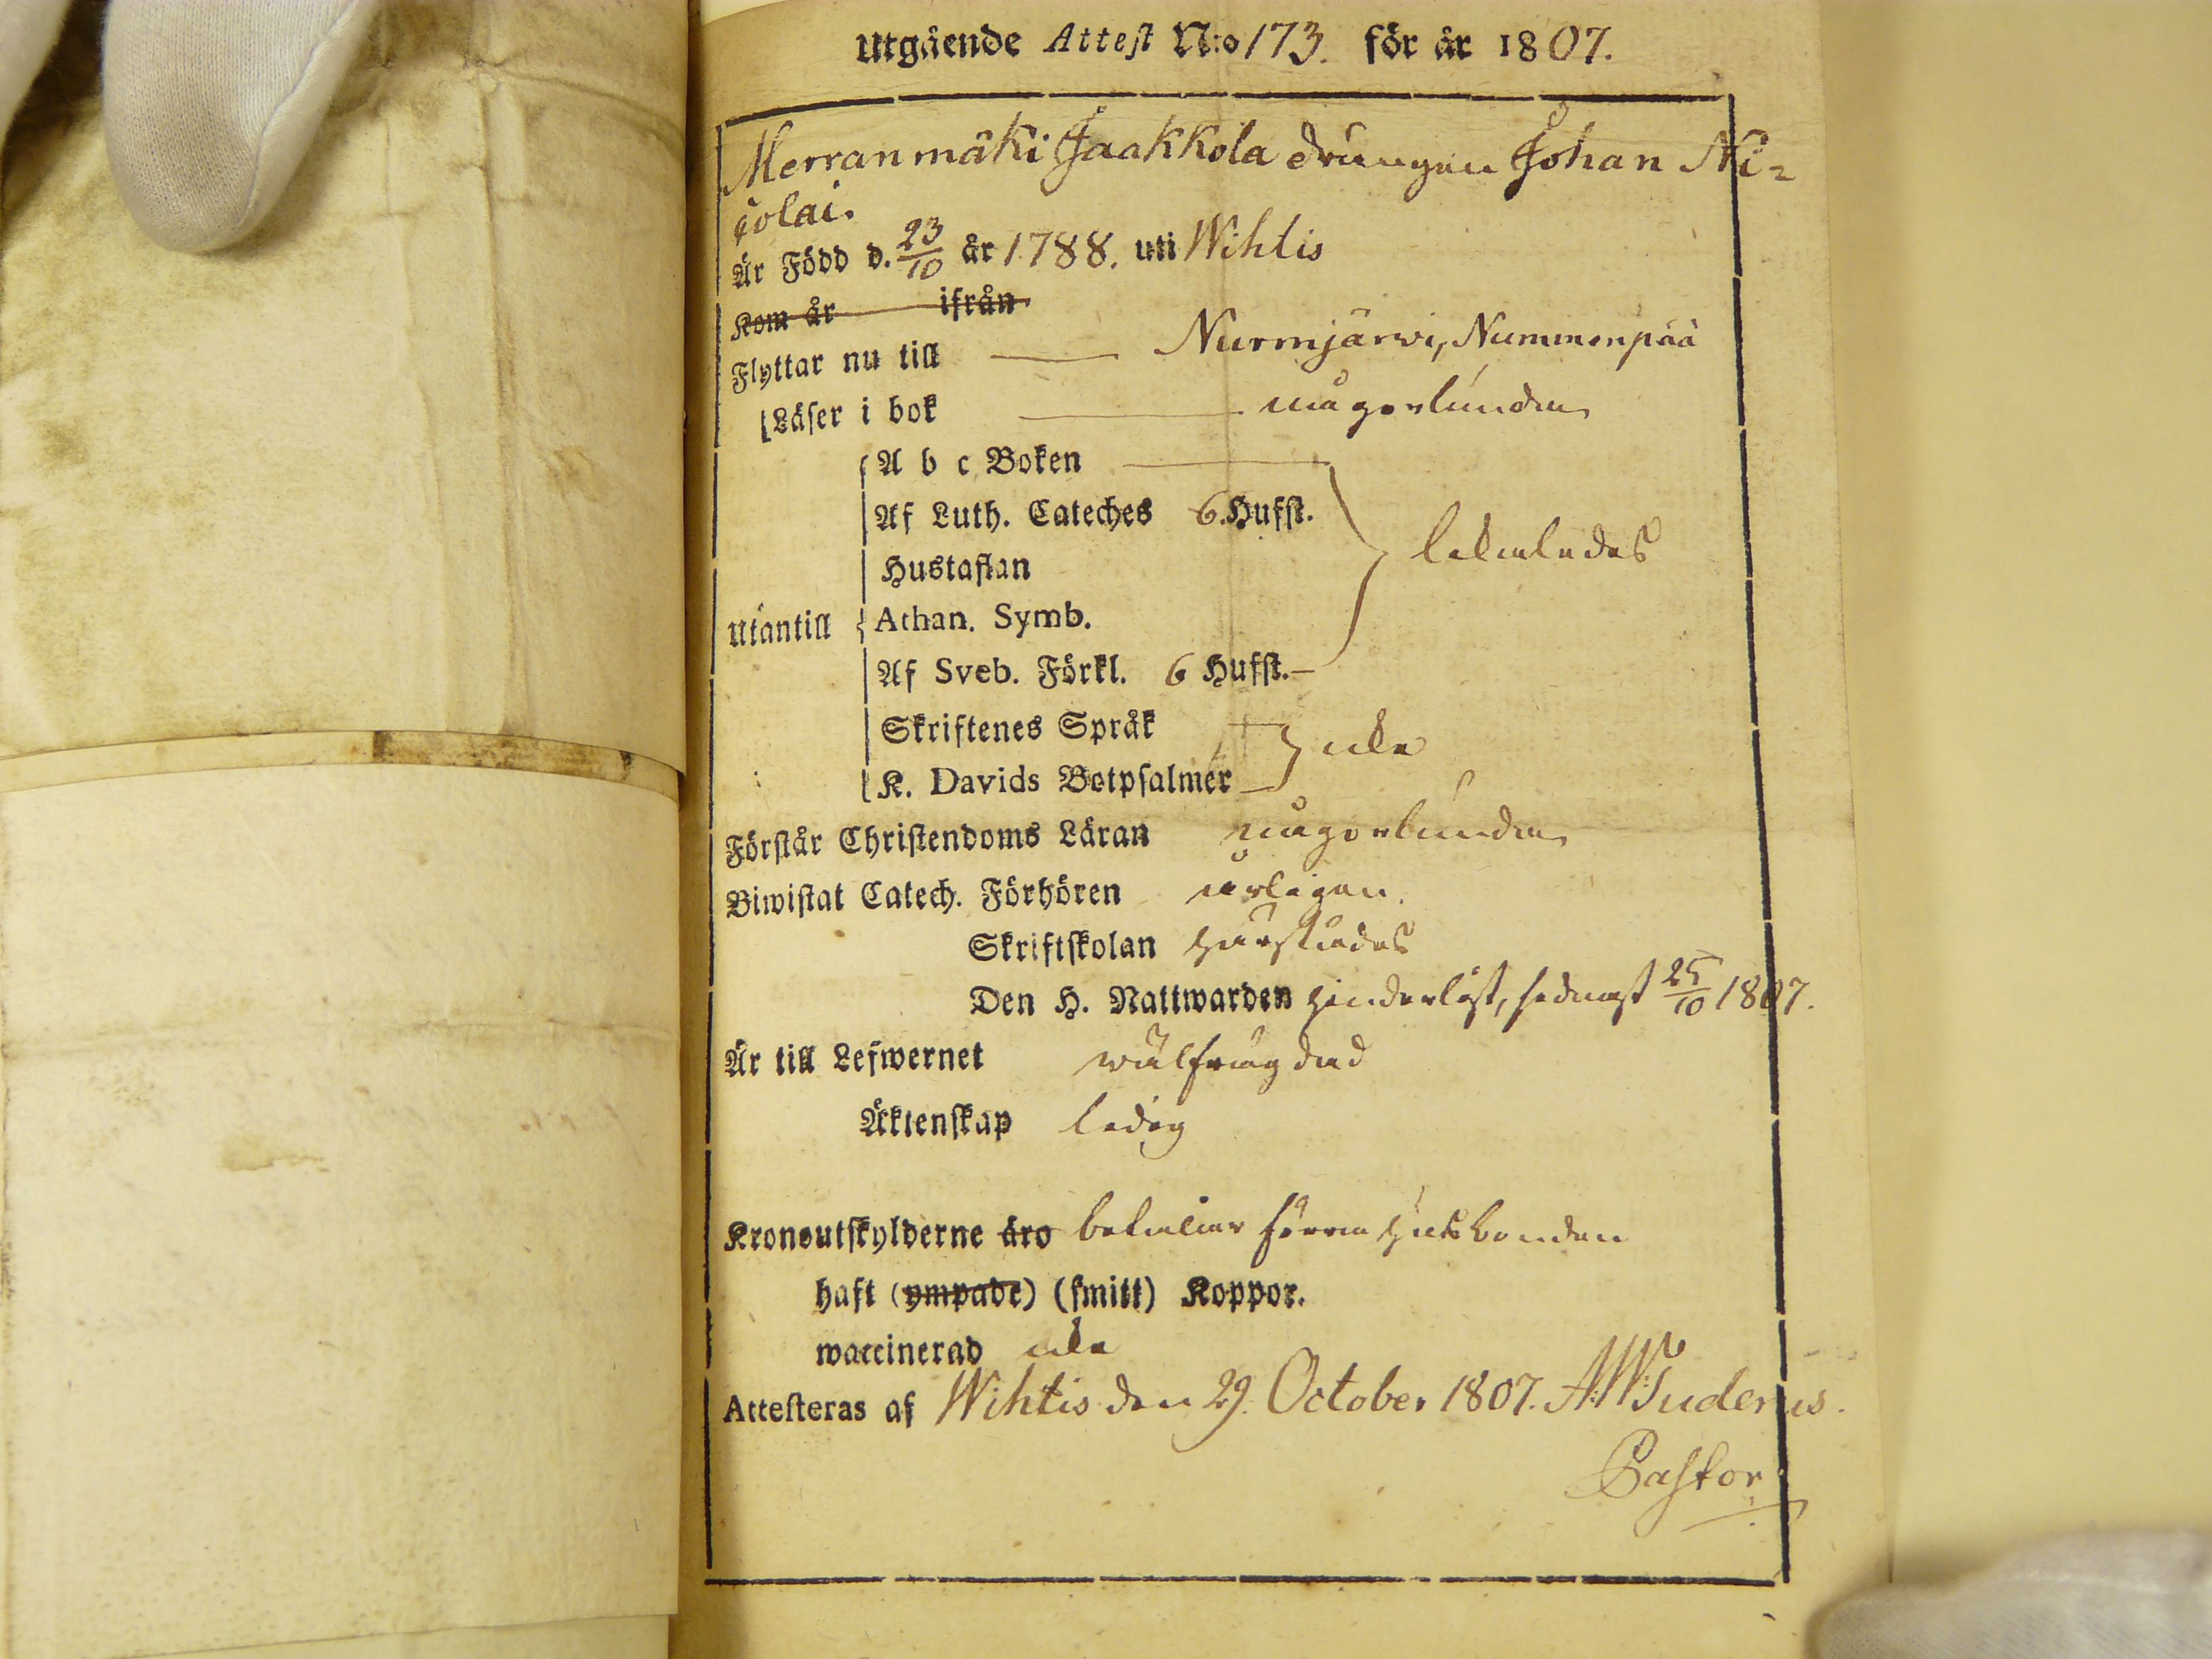 Utgående Attest N:o 173. för år 1807.
Merranmäki Jaakkola drängen Johan Ni=
colai.
Är Född d. 23/10 år 1788. uti Wihtis
Kom år ifrån
Flyttar nu till Nurmjärwi, Nummenpää
Läser i bok någorlunda
A b c Boken
Af Luth. Cateches 6. Hufst.
Hustaflan likaledes
Utantill Athan. Symb.
Af Sveb. Förkl. 6 Hufst.
Skriftenes Språk
icke
K. Davids Botpsalmer
Förstår Christendoms Läran någorlunda
Biwistat Catech. Förhören årligen.
Skriftskolan härstädes
Den H. Nattwarden hinderlöst, sednast 25/10 1807.
Är till Lefwernet wälfrägdad
Äktenskap ledig
Kronoutskylderne äro betalar förra husbonden
haft (ympade) (smitt) Koppor.
waccinerad icke
Attesteras af Wihtis den 29. October 1807. A:W: Tuderus.
Pastor